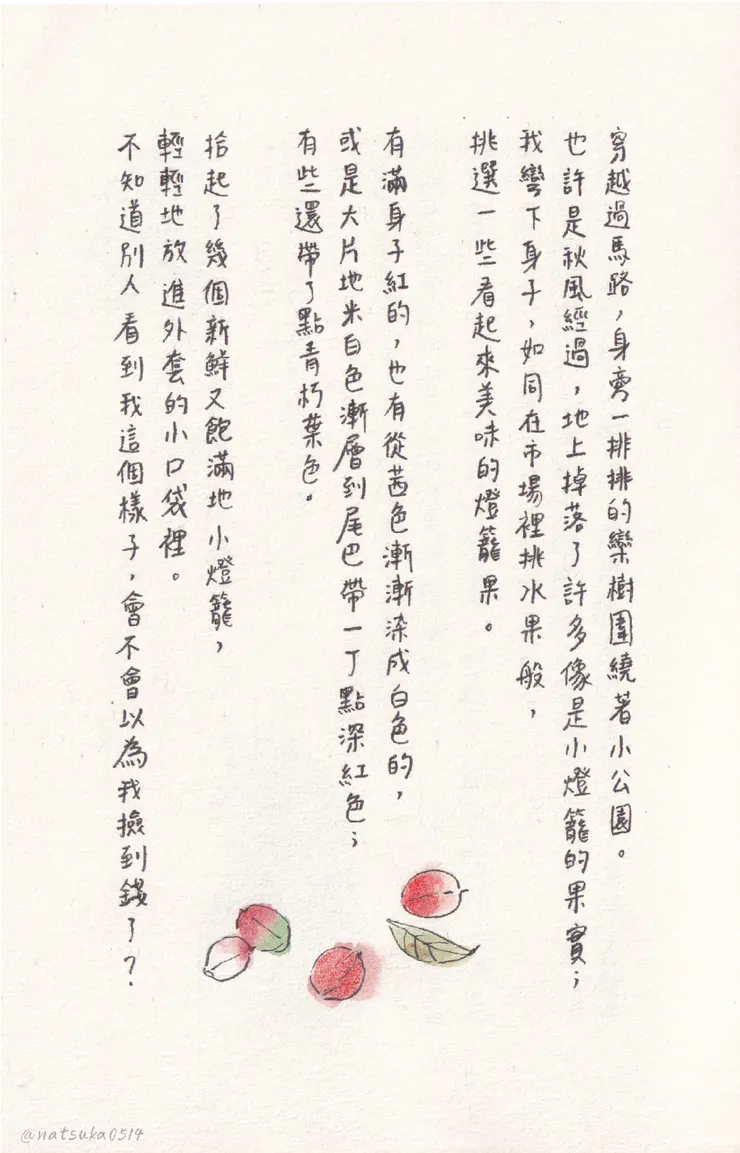 穿越過馬路，身旁一排排的欒樹圍繞著小公園。
也許是秋風經過，地上掉落了許多像是小燈籠的果實；
我彎下身子，如同在市場裡挑水果般，
挑選一些看起來美味的燈籠果。
有滿身子紅的，也有從茜色漸漸染成白色的，
或是大片地米白色漸層到尾巴帶一丁點深紅色；
有些還帶了點青朽葉色。
拾起了幾個新鮮又飽滿地小燈籠，
輕輕地放進外套的小口袋裡。
不知道別人看到我這個樣子，會不會以為我撿到錢了？
@natsuka0514